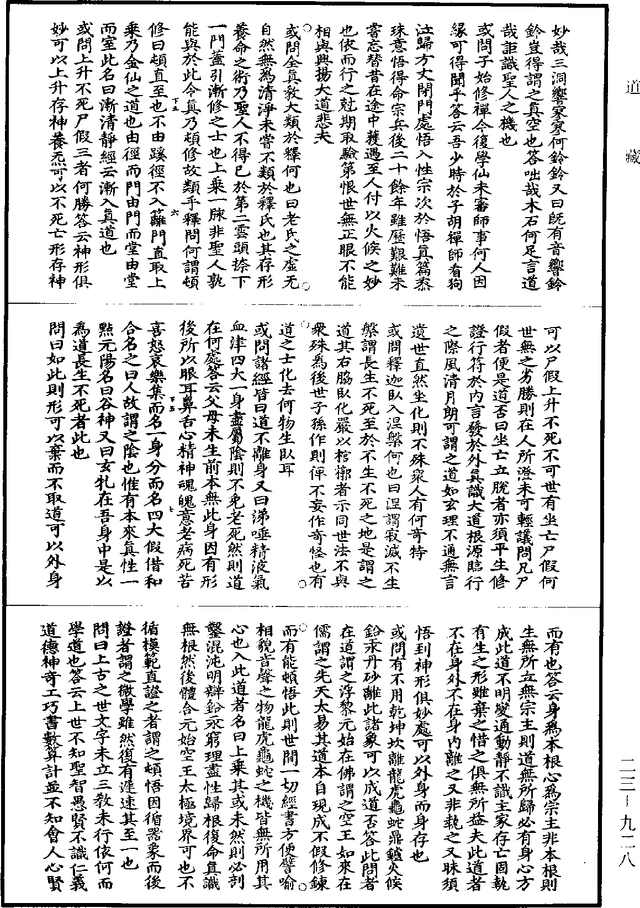 妙哉三洞響寥寥何鈴鈴又曰既有音響鈴
鈴豈得謂之真空也答咄哉木石何足言道
哉詎識聖人之機也
或問子始修禪今復學仙未審師事何人因
緣可得聞乎答云吾少時於子胡禪師看狗
泣歸方丈閉門處悟入性宗次於悟真篇忝
珠意悟得命宗兵後二十餘年雖歷艱難未
嘗忘替昔在途中護遇至人付以火候之妙
也依而行之尅期取驗第恨世無正眼不能
相與興揚大道悲夫
或問全真教大類於釋何也曰老氏之虛无
自然無為清淨未嘗不類於釋氏也其存形
養命之術乃聖人不得已於第二雲頭捺下
一門蓋引漸修之士也上乘一脉非聖人孰
能與於此今真乃頓修故類乎釋問何謂頓
修曰頓直至也不由蹊徑不入籬門直取上
乘乃金仙之道也由徑而門由門而堂由堂
而室此名曰漸清靜經云漸入真道也
或問上升不死尸假三者何勝答云神形俱
妙可以上升存神養炁可以不死亡形存神
可以尸假上升不死不可世有坐亡尸假何
世無之劣勝則在人所證未可輕議問凡尸
假者便是道否曰坐亡立脫者亦須平生修
證行符於內言發於外真識大道根源臨行
之際風清月朗可謂之道如玄理不通無言
遺世直然坐化則不殊衆人有何奇特
或問釋迦臥入涅槃何也曰涅謂寂滅不生
槃謂長生不死至於不生不死之地是謂之
道其右脇臥化嚴以棺槨者示同世法不與
衆殊為後世子孫作則俾不妄作奇怪也有
道之士化去何物生臥耳
或問諸經皆曰道不離身又曰涕唾精液氣
血津四大一身盡屬陰則不免老死然則道
在何處答云父母未生前本無此身因有形
後所以眼耳鼻舌心精神魂魄意老病死苦
喜怒哀樂集而名一身分而名四大假借和
合名之曰人故謂之陰也惟有本來真性一
點元陽名曰谷神又曰玄牝在吾身中是以
為道長生不死者此也
問曰如此則形可以棄而不取道可以外身
而有也答云身為本根心為宗主非本根則
生無所立無宗主則道無所歸必有身心方
成此道不明變通動靜不識主家存亡固執
有生之形雖棄之惜之俱無所益夫此道者
不在身外不在身內離之又非執之又昧須
悟到神形俱妙處可以外身而身存也
或問有不用乾坤坎離龍虎龜蛇鼎鑪火候
鉛汞丹砂離此諸象可以成道否答此問者
在道謂之浮黎元始在佛謂之空王如來在
儒謂之先天太易其道本自現成不假修鍊
而有能頓悟此則世間一切經書方便譬喻
相貌音聲之物龍虎龜蛇之機皆無所用其
心也入此道者名曰上乘其或未然則必剖
鑿混沌明辯鉛汞窮理盡性歸根復命真識
無根然後體合元始空王太極境界可也不
循模範直證之者謂之頓悟因循器象而後
證者謂之漸學雖然復有遲速其至一也
問曰上古之世文字未立三教未行依何而
學道也答云上世不知聖智愚賢不識仁義
道德神奇工巧書數算計並不知會人心賢
道藏
二三—九二八